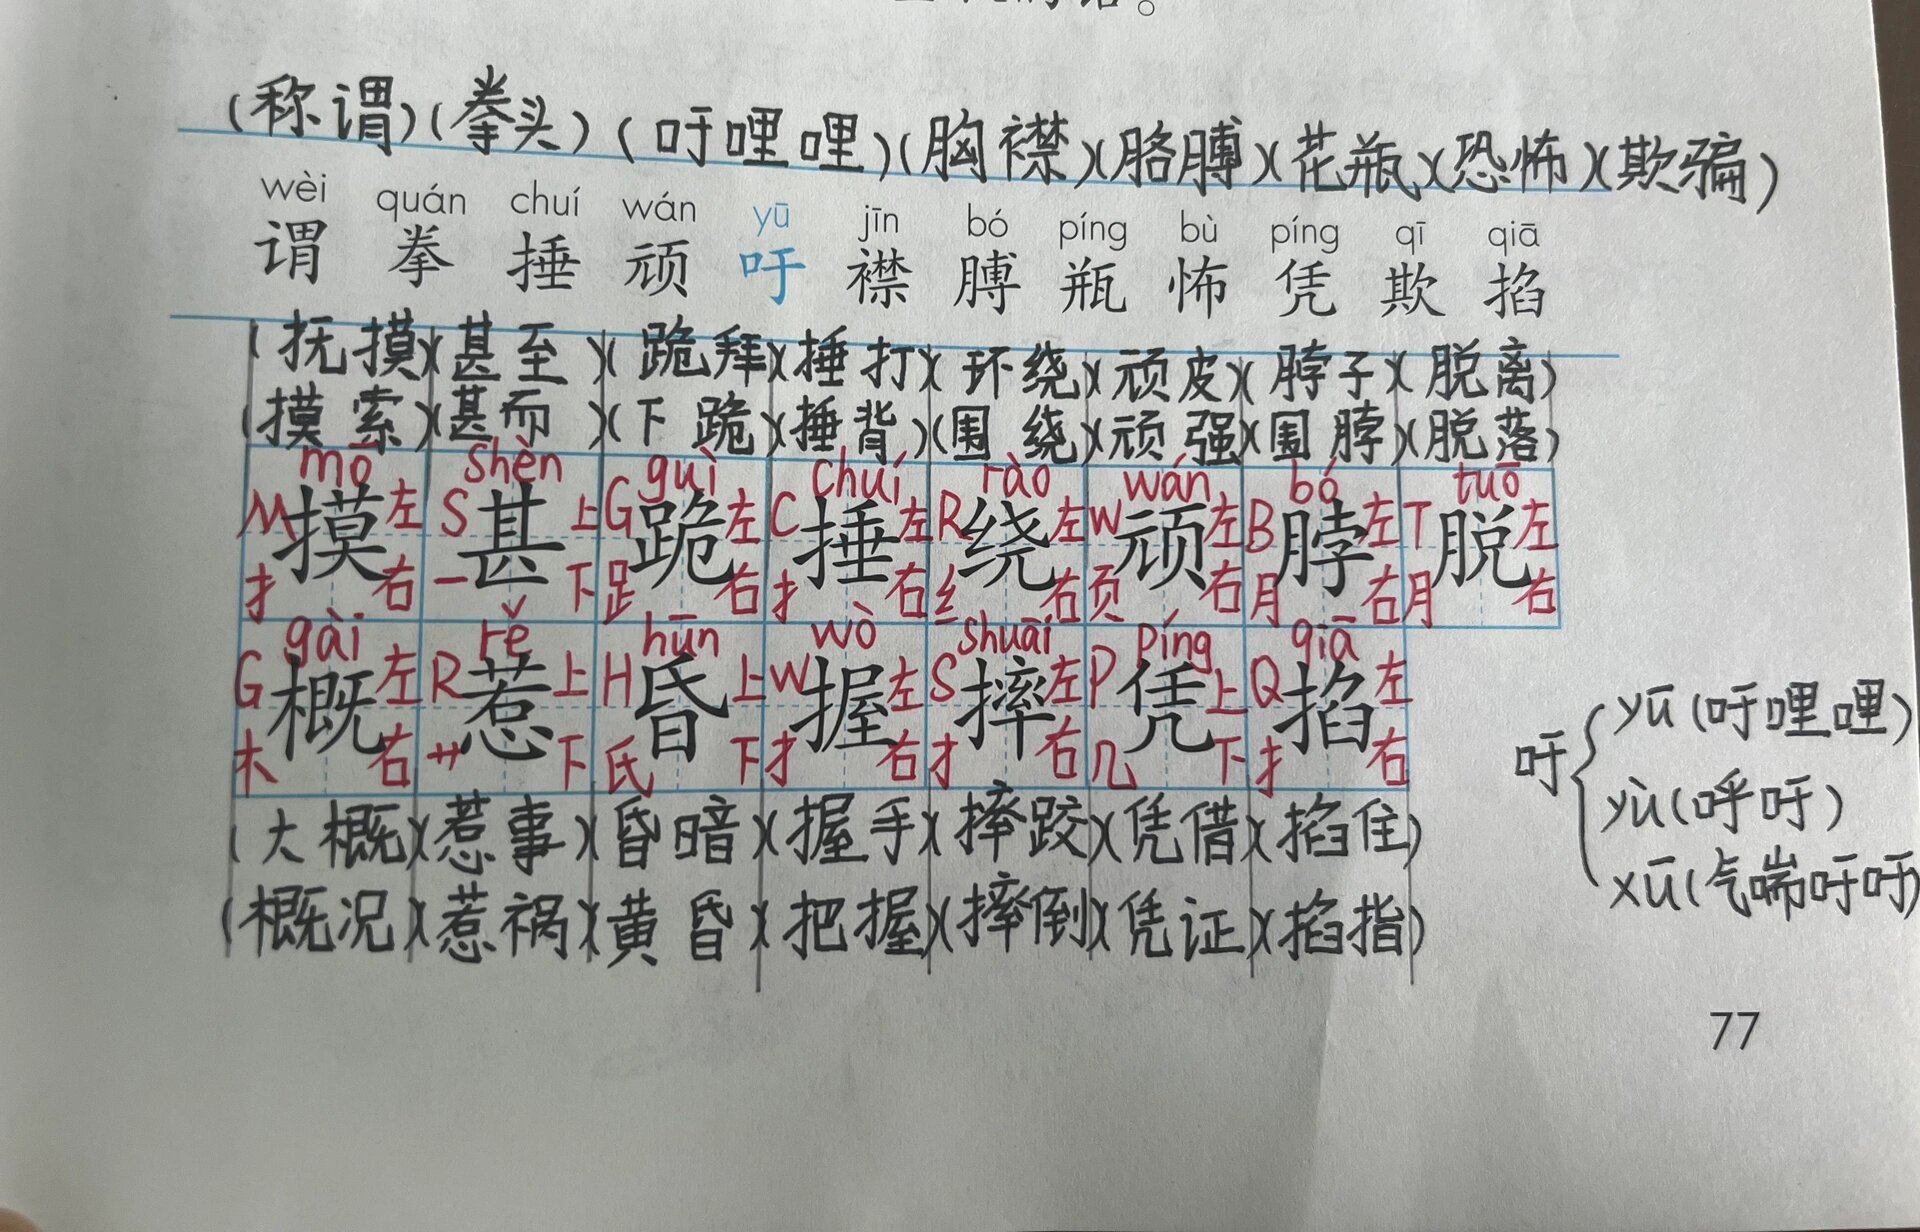 (称谓)(拳头)(吁哩哩)(胸襟)(胳膊)(花瓶)(恐怖)(欺骗)
wèi quán chuí wán yū jīn bó píng bù píng qī qiā
谓 拳 捶 顽 吁 襟 膊 瓶 怖 凭 欺 掐
(抚摸)(甚至)(跪拜)(捶打)(环绕)(顽皮)(脖子)(脱离)
(摸索)(甚而)(下跪)(捶背)(围绕)(顽强)(围脖)(脱落)
mō shèn guì chuí rào wán bó tuō
M摸左 S甚上 G跪左 C捶左 R绕左 W顽左 B脖左 T脱左
扌右 一下 𧾷右 扌右 纟右 页右 月右 月右
gài rě hūn wò shuāi píng qiā
G概左 R惹上 H昏上 W握左 S摔左 P凭上 Q掐左
木右 艹下 氏下 扌右 扌右 几下 扌右
(大概)(惹事)(昏暗)(握手)(摔跤)(凭借)(掐住)
(概况)(惹祸)(黄昏)(把握)(摔倒)(凭证)(掐指)
吁
yū(吁哩哩)
yù(呼吁)
xū(气喘吁吁)
77